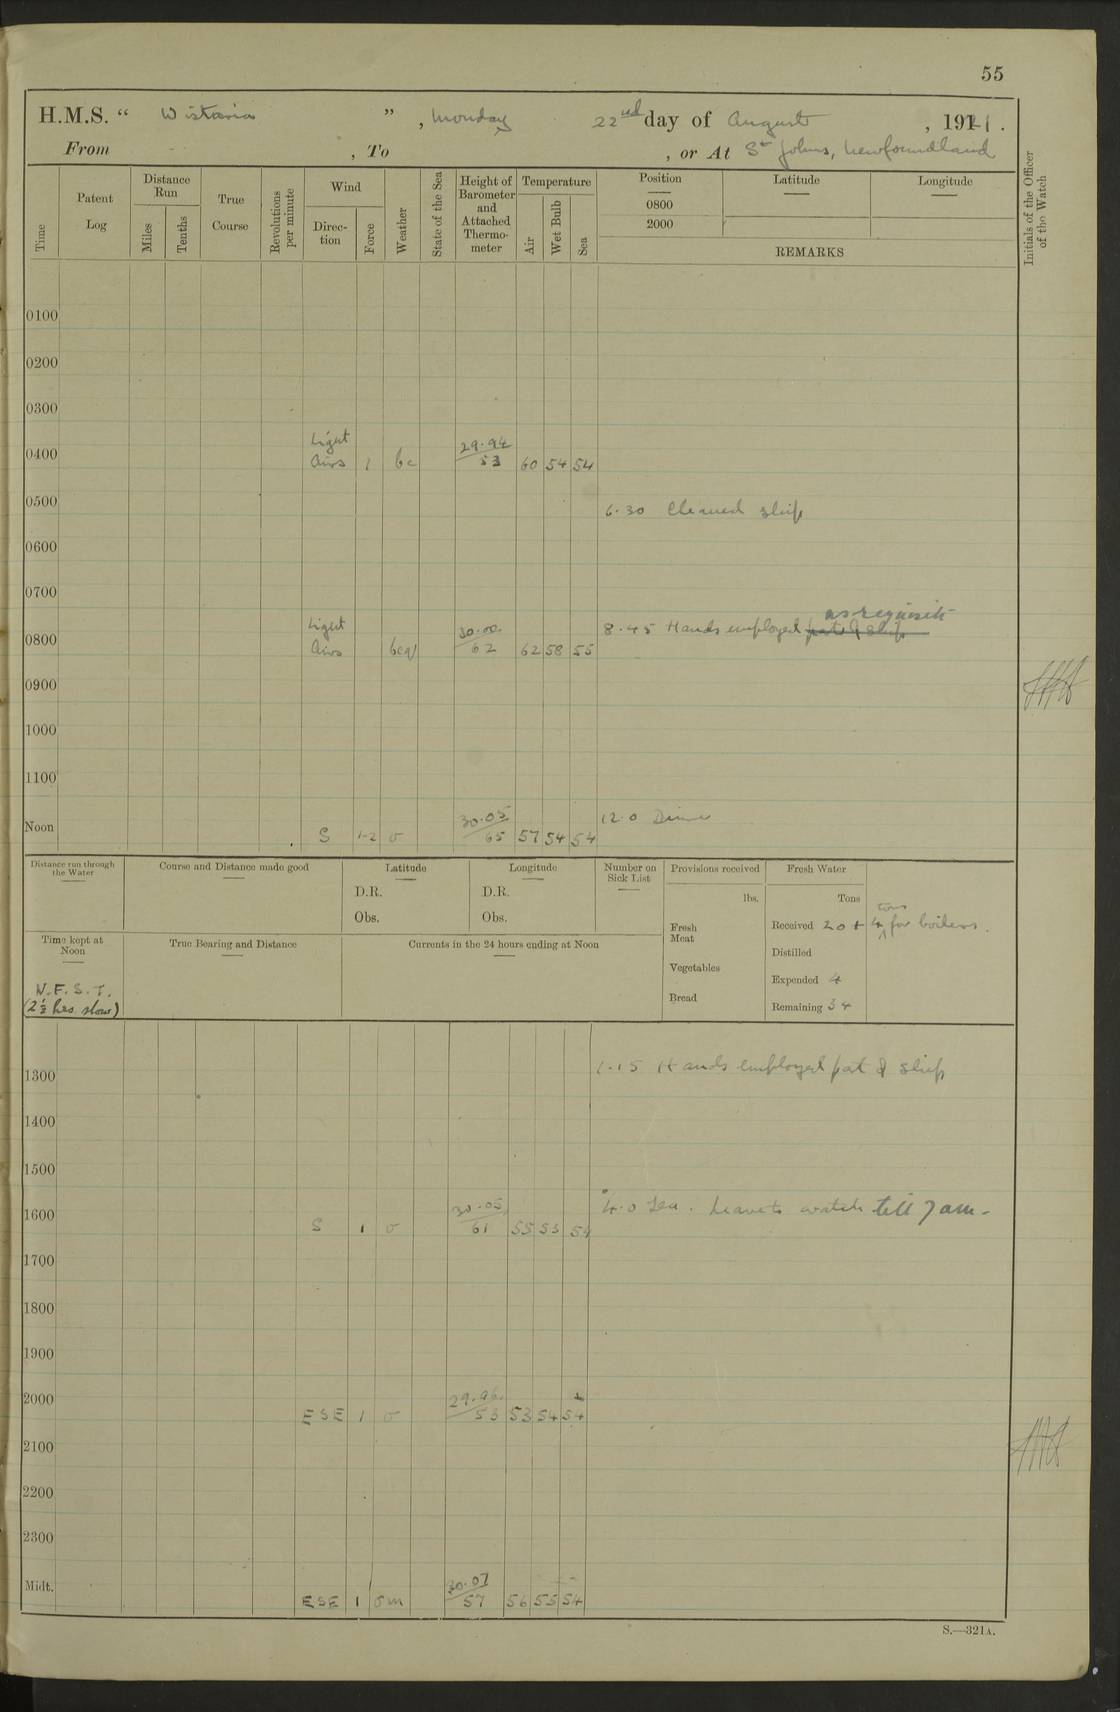 55
H.M.S. “ Wistaria ” , Monday 22nd day of August , 1921 .
From , To , or At St Johns, Newfoundland
Time Patent Log Distance Run Miles Tenths True Course Revolutions per minute Wind Direc-tion Force Weather State of the Sea Height of Barometer and Attached Thermo-meter Temperature Air Wet Bulb Sea Position 0800 2000 Latitude Longitude
REMARKS
Initials of the Officer of the Watch
0100
0200
0300
0400 Light Airs 1 bc 29.94 53 60 54 54
0500 6.30 Cleaned ship
0600
0700
as requisite
0800 Light Airs bcq 30.00 62 62 58 55 8.45 Hands employed part of ship
0900
1000
1100
Noon S 1-2 o 30.05 65 57 54 54 12.0 Dinner
Distance run through the Water Course and Distance made good Latitude Longitude Number on Sick List Provisions received Fresh Water
D.R. D.R. lbs. Tons
Obs. Obs. Fresh Meat Received 20 + 4 tons for boilers.
Time kept at Noon True Bearing and Distance Currents in the 24 hours ending at Noon Distilled
Vegetables Expended 4
N.F.S.T. Bread Remaining 34
(2½ hrs. slow)
1300 1.15 Hands employed part of ship
1400
1500
1600 S 1 o 30.05 61 55 53 54 4.0 Tea. Leave to watch till 7 am.
1700
1800
1900
2000 ESE 1 o 29.96 53 53 54 54
2100
2200
2300
Midt. ESE 1 om 30.07 57 56 55 54
S.—321A.